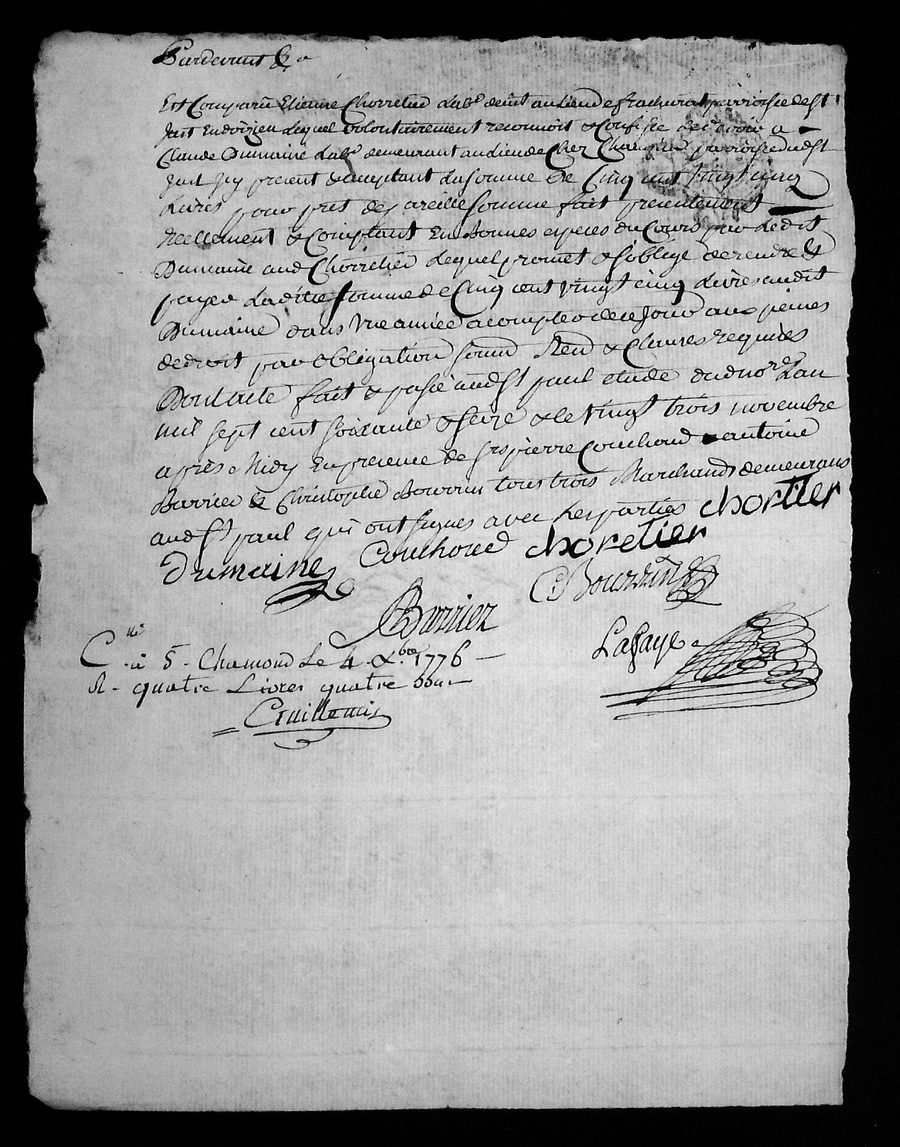 Pardevant &a
Est Comparu Etienne Chorretier Labr demt au Lieu de paroisse de St
Just En doizieu Lequel volontairement reconnoit & Confesse devoir a
Claude Dumaine Labr demeurant au dieu de Chez paroisse dud St
Just Icy present & aceptant La somme de Cinq cent vingt cinq
Livres pour pret de pareille somme fait presentement
reellement & Comptant En Bonnes especes du Cours par Ledit
Dumaine aud Chorretier Lequel promet & soblige de rendre &
payer Ladite somme de Cinq cent vingt cinq Livres audit
Dumaine dans Une année a compter de ce Jour aux peines
de droit par obligation soum Ren & Clauses requises
Dont acte fait & passé aud St paul etude dud nore Lan
mil sept cent soixante & seize & le vingt trois novembre
apres midy En presence de Srs pierre Couchoud antoine
Barrier & Christophe Bourrin tous trois Marchands demeurans
aud St paul qui ont signes avec Les parties chortier
Dumaine Couchoud choretier
C Bourrin
Barrier
Lafaye
C. lé à S. Chamond Le 4 Xbre 1776
R. quatre Livres quatre sous
Guillemin